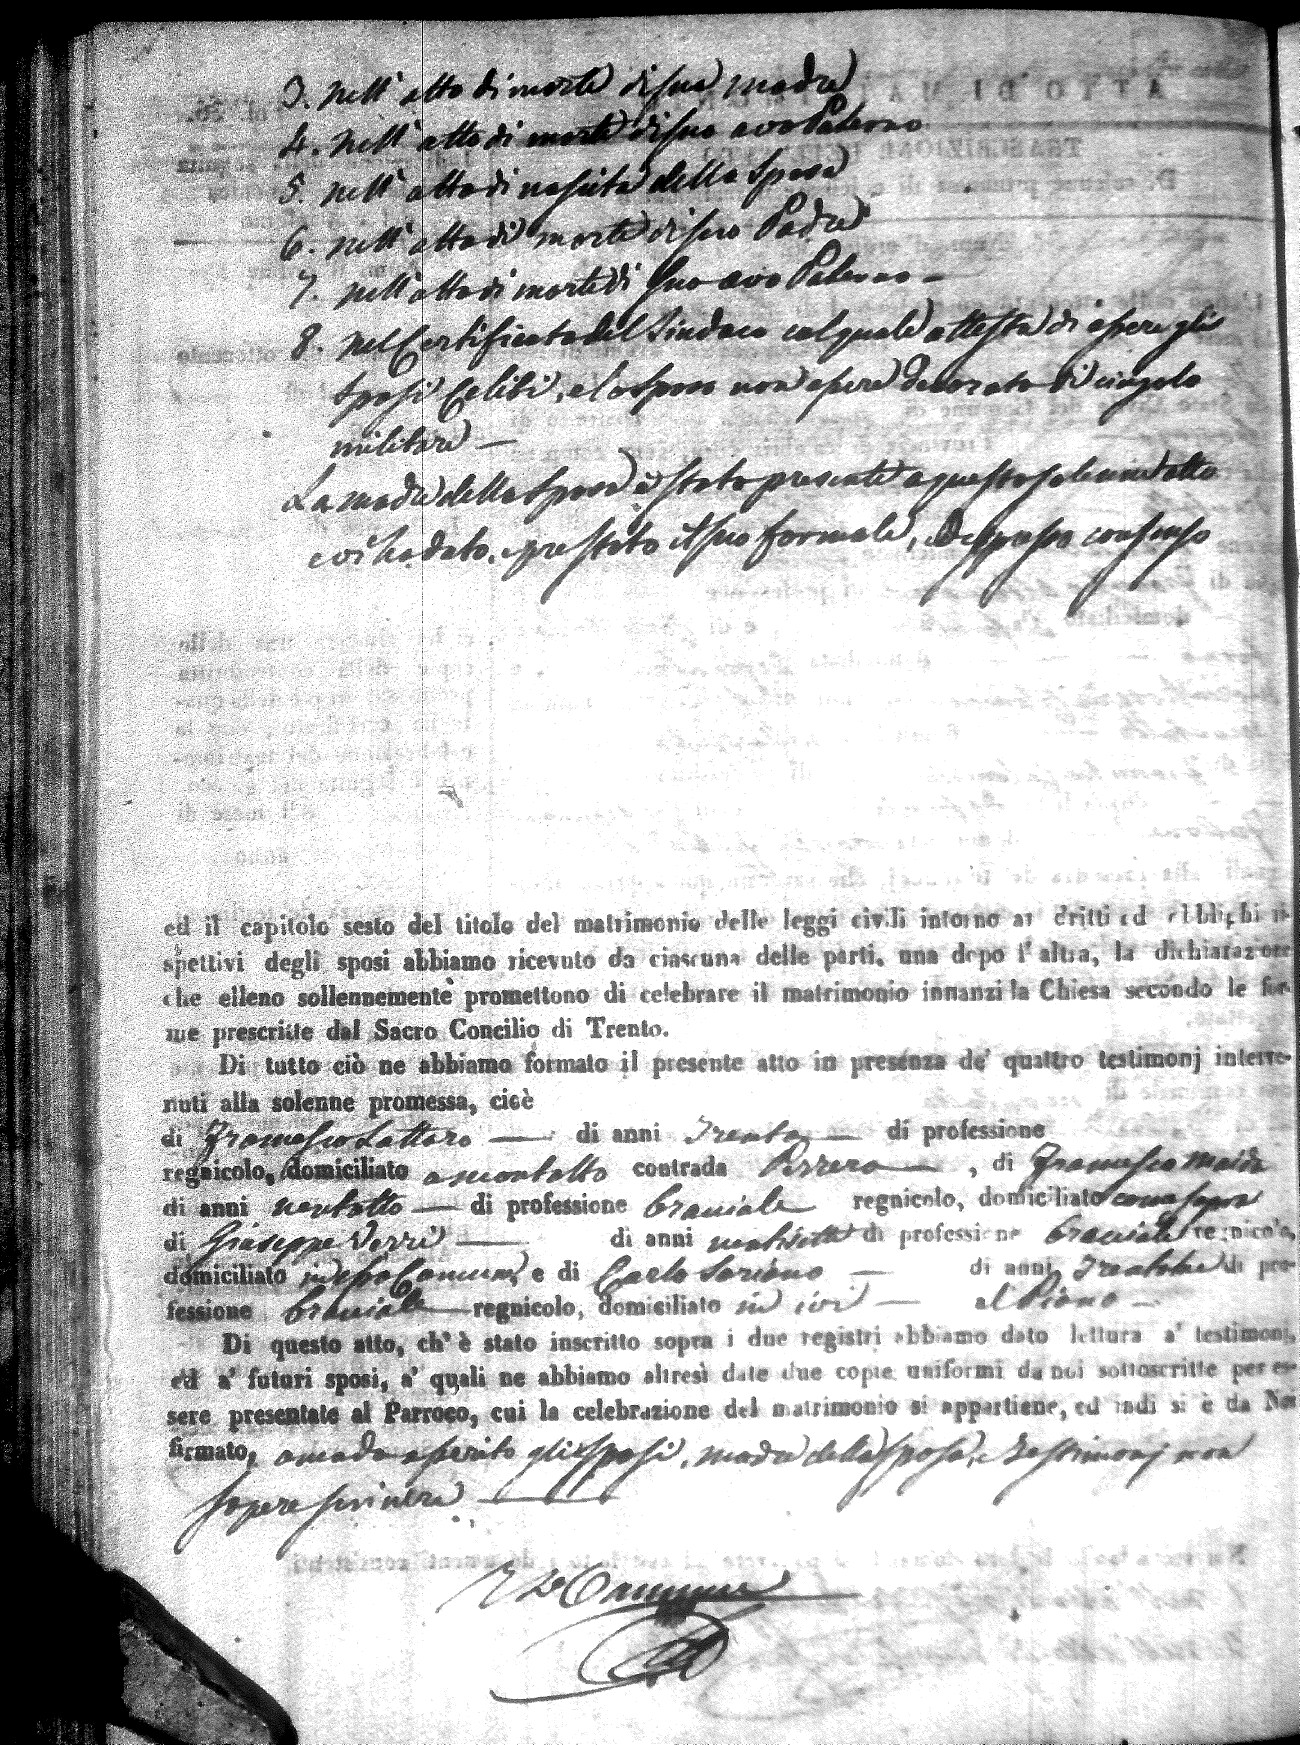 3. nell' atto di morte di sua madre
4. nell' atto di morte di suo avo Paterno
5. nell' atto di nascita della Sposa
6. nell' atto di morte di suo Padre
7. nell' atto di morte di suo avo Paterno —
8. nel Certificato del Sindaco col quale attesta di essere gli
sposi Celibi, e lo sposo non essere decorato di cingolo
militare —
La madre della Sposa è stata presente a questo solenne atto
e vi ha dato, e prestato il suo formale, ed espresso consenso
ed il capitolo sesto del titolo del matrimonio delle leggi civili intorno ai dritti ed obblighi ri-
spettivi degli sposi abbiamo ricevuto da ciascuna delle parti, una dopo l'altra, la dichiarazione
che elleno sollennemente promettono di celebrare il matrimonio innanzi la Chiesa secondo le for-
me prescritte dal Sacro Concilio di Trento.
Di tutto ciò ne abbiamo formato il presente atto in presenza de' quattro testimonj interve-
nuti alla solenne promessa, cioè
di Francesco Lattaro — di anni Trenta — di professione
regnicolo, domiciliato a Montalto contrada — , di Francesco Maida
di anni ventotto — di professione braciale regnicolo, domiciliato come sopra
di Giuseppe Verri — di anni ventisette di professione braciale regnicolo,
domiciliato in esso Comune, e di Carlo Soriano — di anni di pro-
fessione braciale — regnicolo, domiciliato in ivi — al Piano —
Di questo atto, ch' è stato inscritto sopra i due registri abbiamo dato lettura a' testimonj,
ed a' futuri sposi, a' quali ne abbiamo altresì date due copie uniformi da noi sottoscritte per es-
sere presentate al Parroco, cui la celebrazione del matrimonio si appartiene, ed indi si è da Noi
firmato, gli sposi, madre della sposa, e Testimonj non
sapere scrivere —